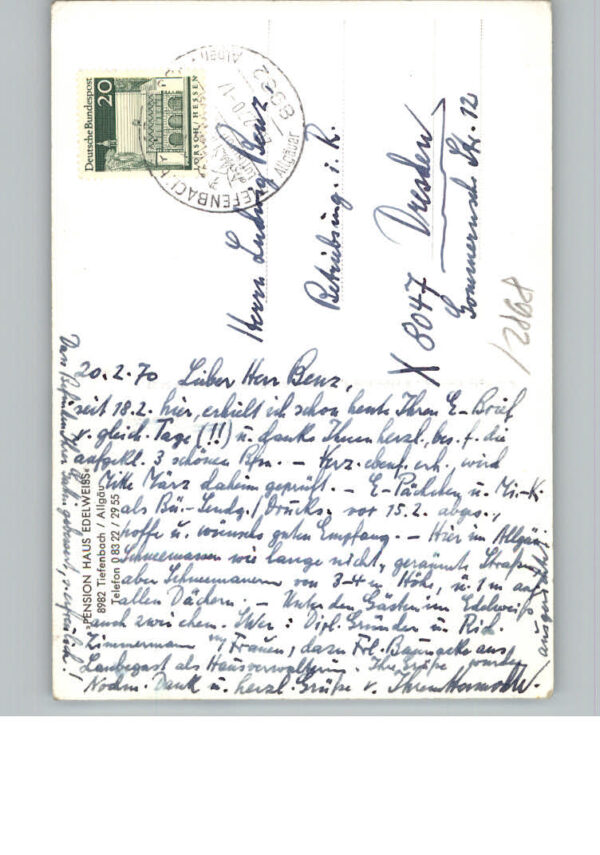 Deutsche Bundespost
20
LORSCH / HESSEN
TIEFENBACH
8982
Allgäuer
Herrn Ludwig Benz
Betriebsing. i. R.
X 8047 Dresden
Str. 12
20.2.70 Lieber Herr Benz,
seit 18.2. hier, erhielt ich schon heute Ihren E-Brief
v. gleich. Tage (!!) u. danke Ihnen herzl., bes. f. die
aufgekl. 3 schönen - Verz. ebenf. erh., wird
Mitte März daheim geprüft. - E-Päckchen u. Mi.-K.
als Bü.-Sendg./Drucks. vor 15.2. abges.,
hoffe u. wünsche guten Empfang. - Hier im Allgäu
Schneemassen wie lange nicht, geräumte Straßen
aber Schneemauern von 3-4 m Höhe, u. 1 m auf
allen Dächern. - Unter den Gästen im Edelweiß
auch zwei ehem. Dipl. Gründer u. Rich.
Zimmermann m/ Frauen, dazu Frl. Baumgarte aus
Laubegast als Hausverwalterin. Ihre Grüße wurden
ausgerichtet!
Nochm. Dank u. herzl. Grüße v. Ihrem
»PENSION HAUS EDELWEISS«
8982 Tiefenbach / Allgäu
Telefon 0 83 22 / 29 55